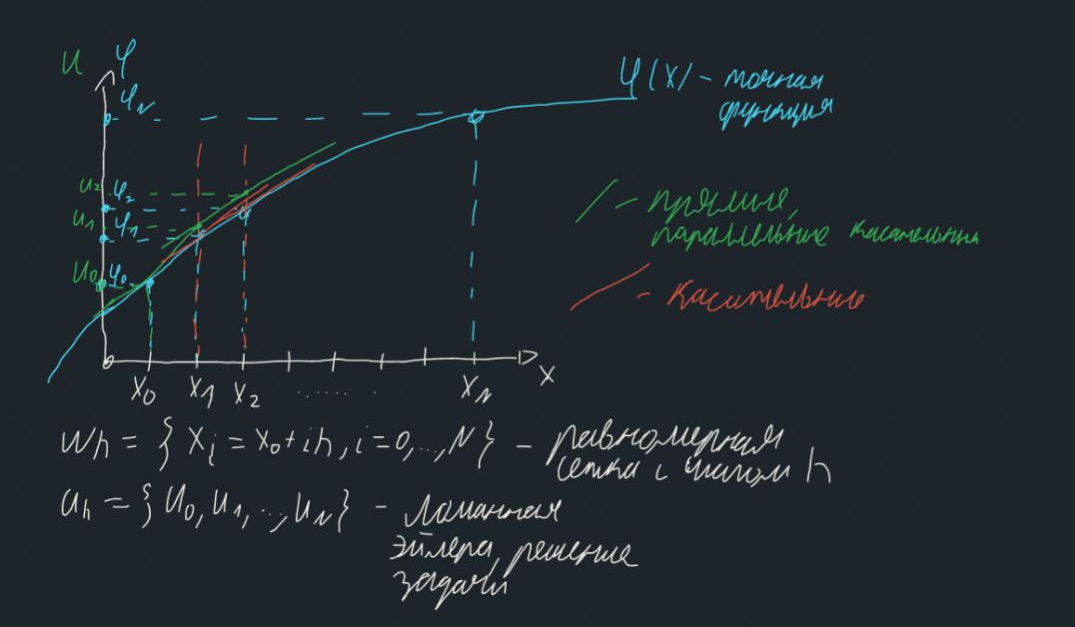 u φ
φ_N
φ(x) - точная
функция
u₂ φ₂
u₁ φ₁
u₀ φ₀
/ - прямые,
параллельные касательным
/ - касательные
x₀ x₁ x₂ ...... x_N x
ω_h = { x_i = x₀ + ih, i = 0, .., N } - равномерная
сетка с числом h
u_h = { u₀, u₁, .., u_N } - Ломанная
Эйлера, решение
задачи